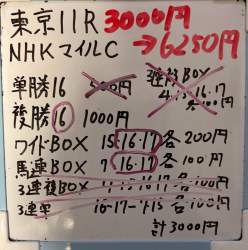 東京11R 3000円
NHKマイルC →6250円
単勝16 500円
複勝16 1000円
ワイドBOX 15.16.17 各200円
馬連BOX 7.16.17 各100円
3連複BOX
3連単 16.17-7.15 各100円
計3000円